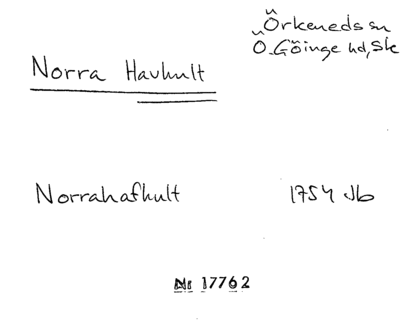 Örkeneds sn
Ö. Göinge hd, Sk
Norra Havhult
Norrahafhult 1754 Jb
Nr 17762